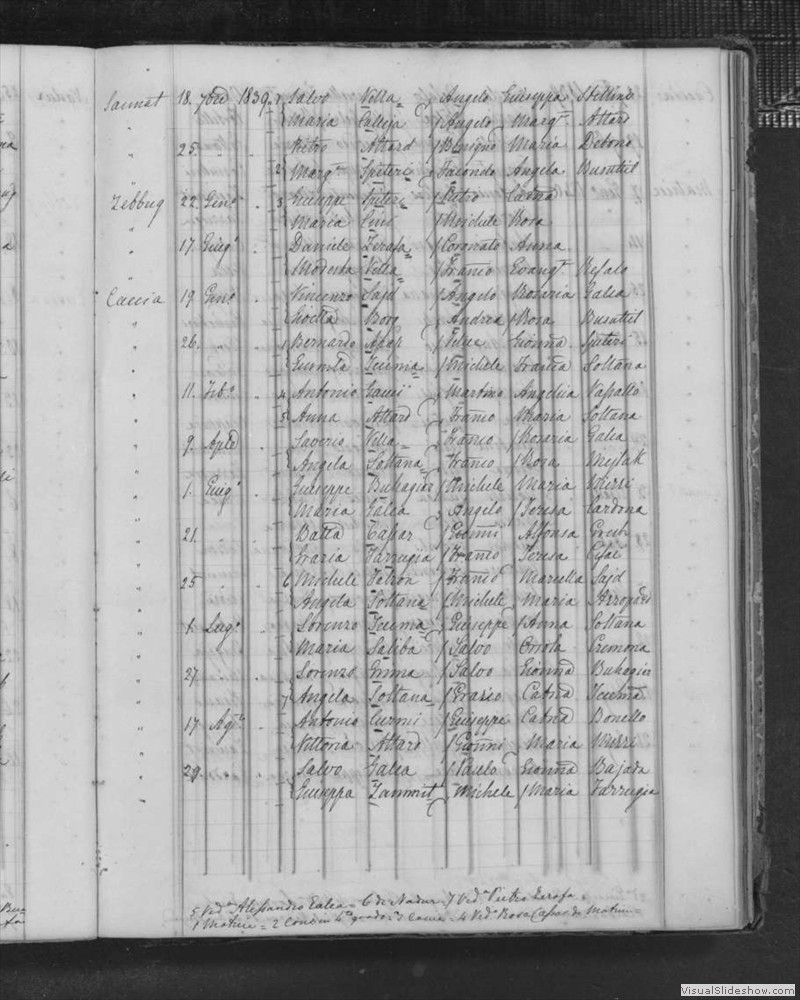 Sannat 18. 7bre 1839. 1 Salvo Vella Angelo Giuseppa Stellini
Maria Calleja Angelo Margta Attard
25. Pietro Attard Benigno Maria Debono
2 Margta Spiteri Facondo Angela Busuttil
Zebbug 22 Genо 3 Giuseppe Spiteri Pietro
Maria Michele Rosa
17 Giugo Daniele Zerafa Coronato Anna
Modesta Vella Franco Evangta Refalo
Caccia 19 Geno Vincenzo Said Angelo Rosaria Galea
Borg Andrea Rosa Busuttil
26. 1 Bernardo Apap Felice Gionna Spiteri
Xicuna Michele Franca Soltana
11. Febo 4 Antonio Gauci Martino Angelica Vassallo
5 Anna Attard Franco Maria Soltana
9. Aple Saverio Vella Franco Rosaria Galea
Angela Soltana Franco Rosa Mejlak
1. Giugo Giuseppe Buhagiar Michele Maria
Maria Galea Angelo Teresa Cardona
21. Batta Caspar Gionni Alfonsa Grech
Grazia Farrugia Franco Teresa
25 6 Michele Franco Mariella Said
Angela Soltana Michele Maria
1. Lugo Lorenzo Xicuna Giuseppe Anna Soltana
Maria Saliba Salvo Orsola Cremona
27 Lorenzo Salvo Gionna Buhagiar
7 Angela Soltana Grazio Catna Xicuna
17 Agto Antonio Curmi Giuseppe Catna Bonello
Vittoria Attard Gionni Maria
29. Salvo Galea Paulo Gionna Bajada
Giuseppa Zammit Michele Maria Farrugia
5 Veda Alessandro Galea = 6 de Nadur. 7 Veda Pietro Zerafa.
1 Matrice = 2 4o grado. 3 4 Veda Rosa Caspar da Matrice =
VisualSlideshow.com